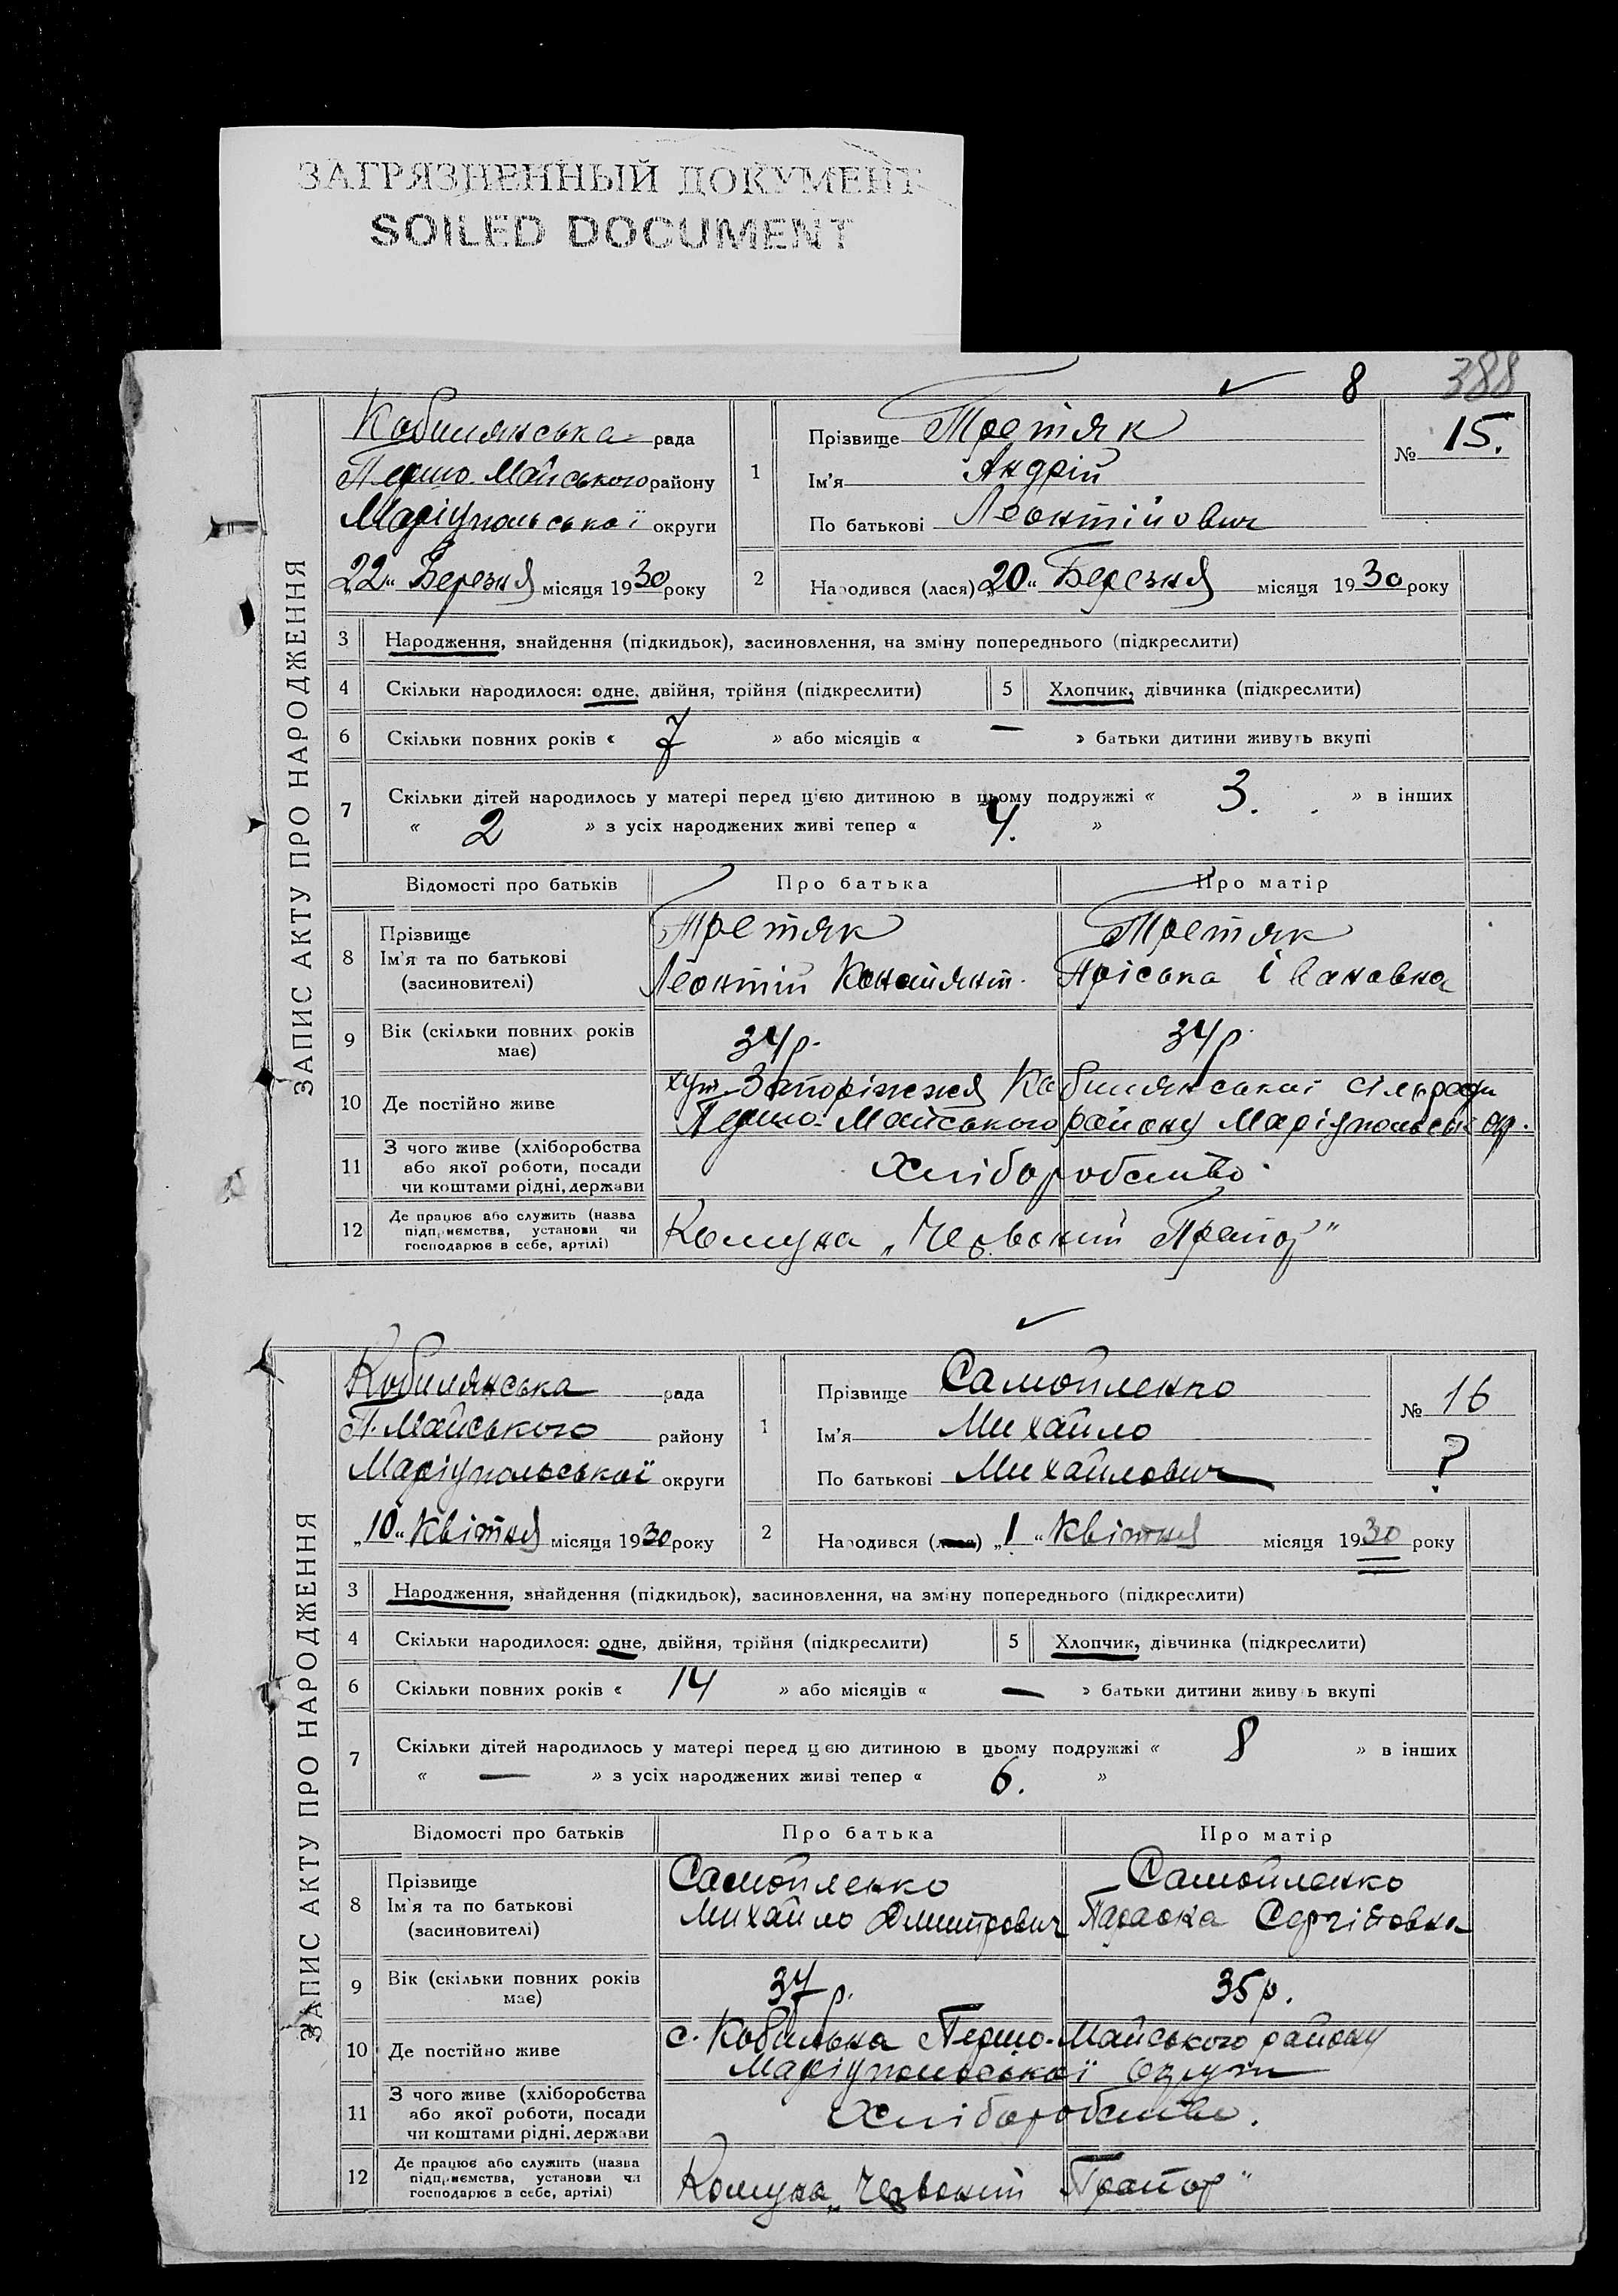 ЗАГРЯЗНЕННЫЙ ДОКУМЕНТ
SOILED DOCUMENT
8 388
ЗАПИС АКТУ ПРО НАРОДЖЕННЯ
Кобилянська рада
Першо-Майського району
Маріупольської округи
„22“ Березня місяця 1930 року
1
Прізвище Третяк
Ім'я Андрій
По батькові Леонтійович
№ 15.
2 Народився (лася) „20“ Березня місяця 1930 року
3 Народження, знайдення (підкидьок), засиновлення, на зміну попереднього (підкреслити)
4 Скільки народилося: одне, двійня, трійня (підкреслити) 5 Хлопчик, дівчинка (підкреслити)
6 Скільки повних років « 7 » або місяців « — » батьки дитини живуть вкупі
7 Скільки дітей народилось у матері перед цією дитиною в цьому подружжі « 3. » в інших
« 2 » з усіх народжених живі тепер « 4. »
Відомості про батьків Про батька Про матір
8 Прізвище Третяк Третяк
Ім'я та по батькові Леонтій Іванівна
(засиновителі)
9 Вік (скільки повних років має) 34 р. 34 р.
10 Де постійно живе хут. Запоріжжя Кобилянської сільради
Першо-Майського району Маріупольськ. окр.
11 З чого живе (хліборобства
або якої роботи, посади
чи коштами рідні, держави Хліборобство
12 Де працює або служить (назва
підприємства, установи чи
господарює в себе, артілі) Комуна „Червоний Прапор"
ЗАПИС АКТУ ПРО НАРОДЖЕННЯ
Кобилянська рада
П. Майського району
Маріупольської округи
„10“ Квітня місяця 1930 року
1
Прізвище Самойленко
Ім'я Михайло
По батькові Михайлович
№ 16
?
2 Народився (лася) „1“ Квітня місяця 1930 року
3 Народження, знайдення (підкидьок), засиновлення, на зміну попереднього (підкреслити)
4 Скільки народилося: одне, двійня, трійня (підкреслити) 5 Хлопчик, дівчинка (підкреслити)
6 Скільки повних років « 14 » або місяців « — » батьки дитини живуть вкупі
7 Скільки дітей народилось у матері перед цією дитиною в цьому подружжі « 8 » в інших
« — » з усіх народжених живі тепер « 6. »
Відомості про батьків Про батька Про матір
8 Прізвище Самойленко Самойленко
Ім'я та по батькові Михайло Дмитрович Параска Сергіївна
(засиновителі)
9 Вік (скільки повних років має) 37 р. 35 р.
10 Де постійно живе с. Кобильна Першо-Майського району
Маріупольської округи
11 З чого живе (хліборобства
або якої роботи, посади
чи коштами рідні, держави Хліборобство.
12 Де працює або служить (назва
підприємства, установи чи
господарює в себе, артілі) Комуна „Червоний Прапор"